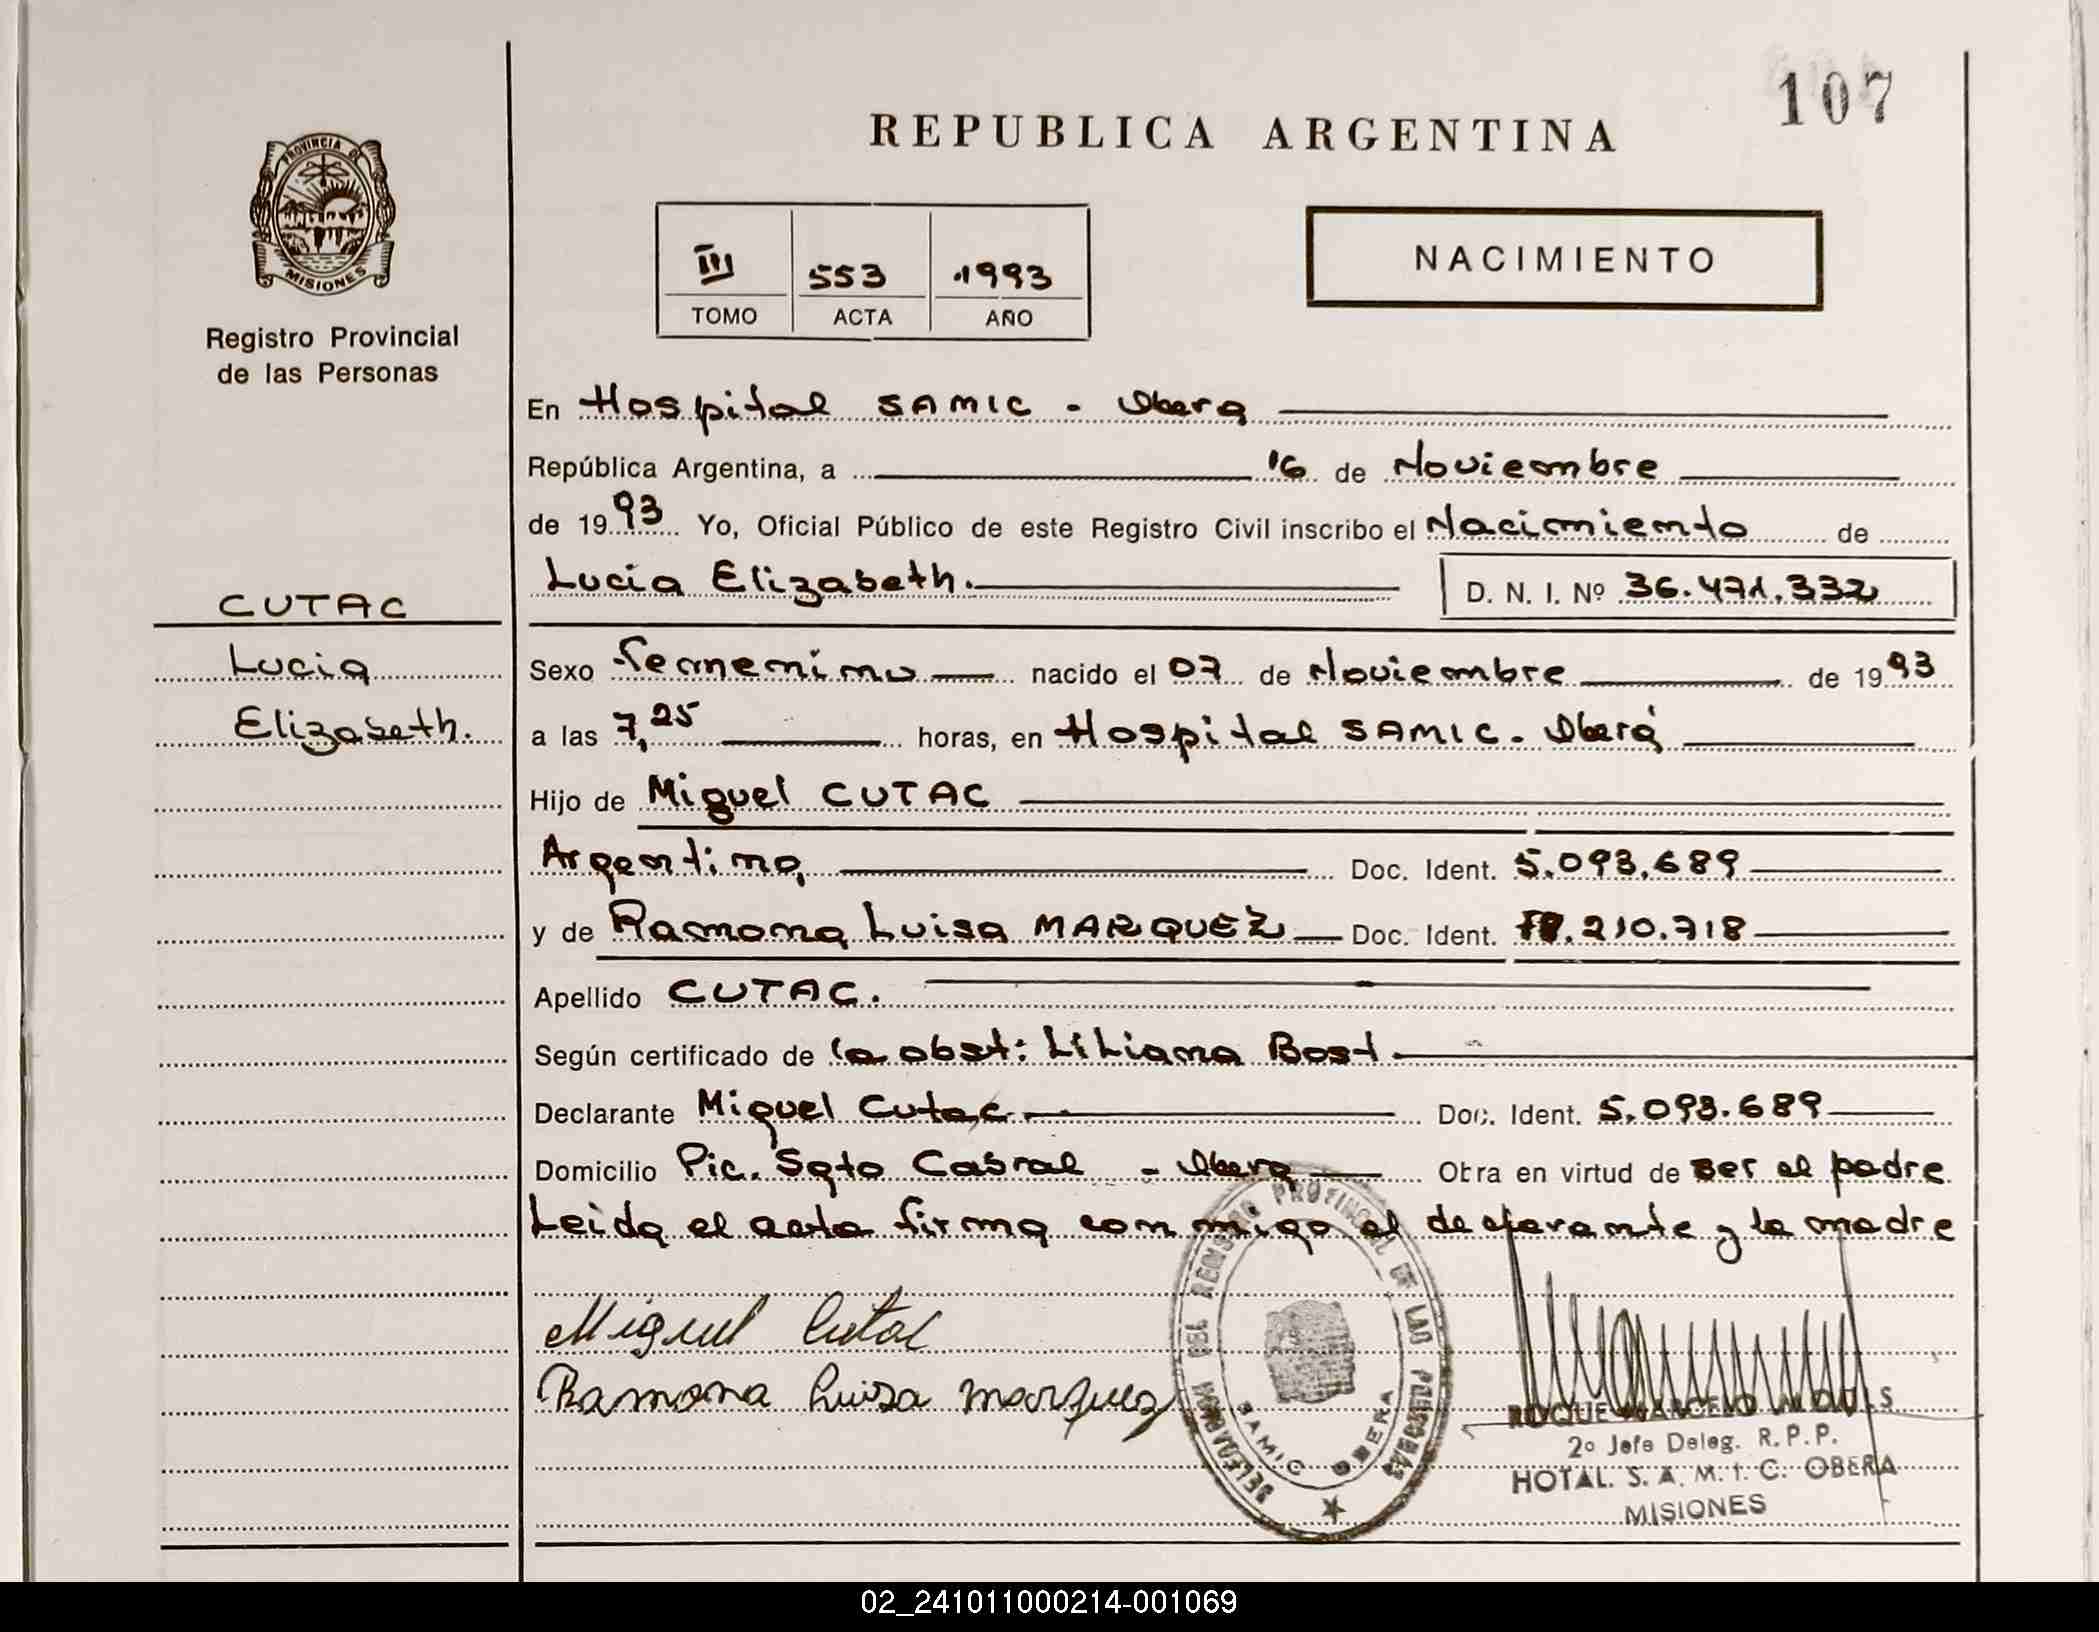 107
REPUBLICA ARGENTINA
PROVINCIA DE
MISIONES
Registro Provincial
de las Personas
III 553 1993
TOMO ACTA AÑO
NACIMIENTO
En Hospital SAMIC - Obera
República Argentina, a 16 de Noviembre
de 1993 Yo, Oficial Público de este Registro Civil inscribo el Nacimiento de
Lucia Elizabeth. D. N. I. Nº 36.471.332
CUTAC
Lucia
Elizabeth.
Sexo Femenino nacido el 07 de Noviembre de 1993
a las 7,25 horas, en Hospital SAMIC - Oberá
Hijo de Miguel CUTAC
Argentino, Doc. Ident. 5.093.689
y de Ramona Luisa MARQUEZ Doc. Ident. .210.718
Apellido CUTAC.
Según certificado de la obst: Liliana Bost.
Declarante Miguel Cutac Doc. Ident. 5.093.689
Domicilio Pic. Sgto Cabral - Obera Obra en virtud de ser el padre
Leida el acta firma conmigo el declarante y la madre
Miguel Cutac
Ramona Luisa Marquez
DELEGACION DEL REGISTRO PROVINCIAL DE LAS PERSONAS
SAMIC OBERA
ROQUE MARCELO
2º Jefe Deleg. R.P.P.
HOTAL. S. A. M. I. C. OBERA
MISIONES
02_241011000214-001069